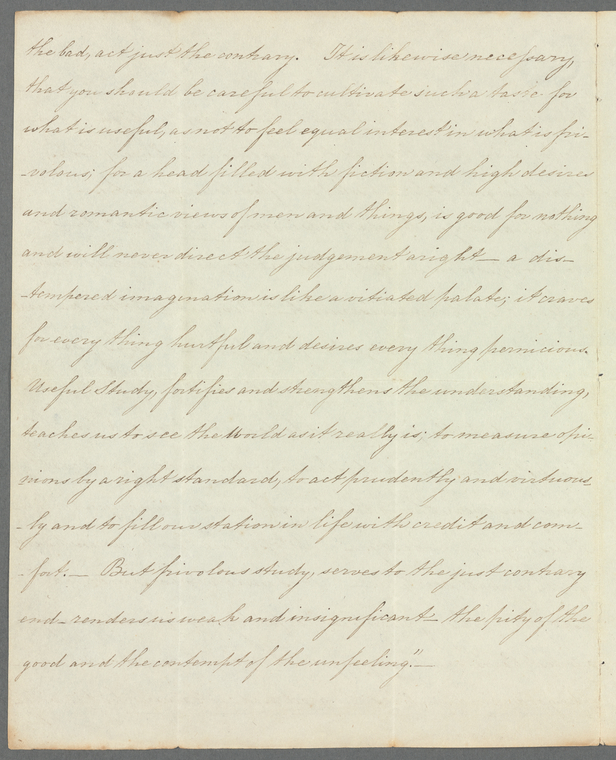 the bad, act just the contrary. It is likewise necessary,
that you should be careful to cultivate such a taste for
what is useful, as not to feel equal interest in what is fri-
-volous; for a head filled with fiction and high desires
and romantic views of men and things, is good for nothing
and will never direct the judgement aright — a dis-
-tempered imagination is like a vitiated palate; it craves
for every thing hurtful and desires every thing pernicious.
Useful Study, fortifies and strengthens the understanding,
teaches us to see the World as it really is; to measure opi-
nions by a right standard, to act prudently and virtuous-
-ly and to fill our station in life with credit and com-
-fort. — But frivolous study, serves to the just contrary
end - renders us weak and insignificant - the pity of the
good and the contempt of the unfeeling." —